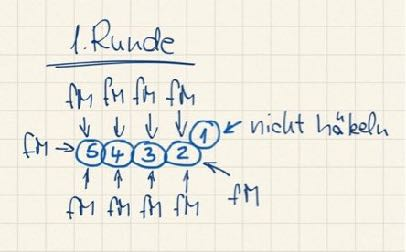 1. Runde
fM fM fM fM
1 nicht häkeln
fM 5 4 3 2
fM
fM fM fM fM